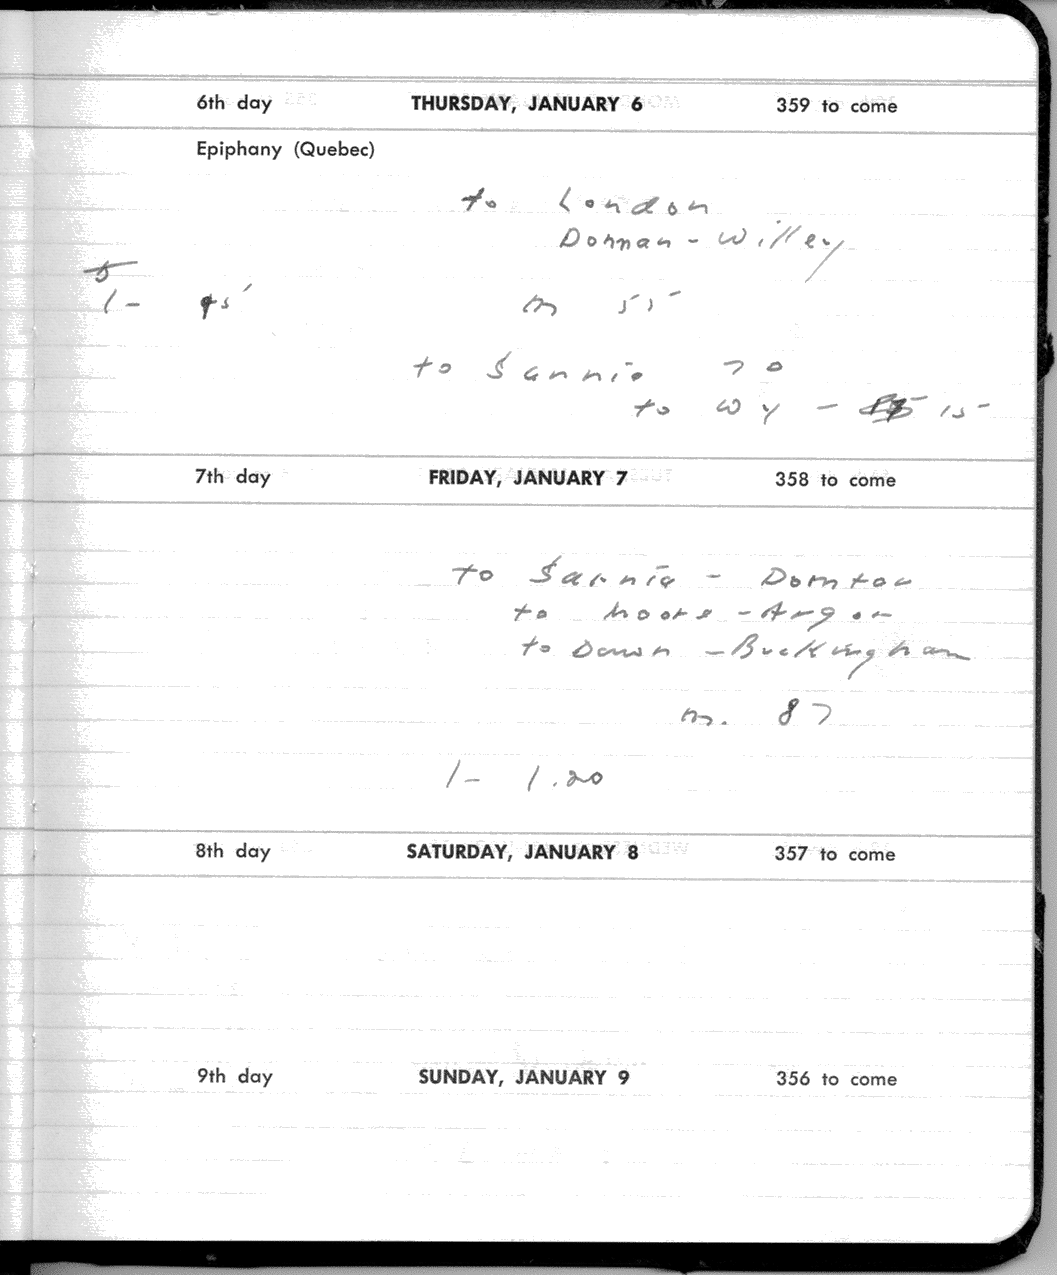 6th day THURSDAY, JANUARY 6 359 to come
Epiphany (Quebec)
to London
Dornan - Willey
1- 95 m 55
to Sarnia 70
to Wy - 15
7th day FRIDAY, JANUARY 7 358 to come
to Sarnia - Dornton
to Moore - Argon
to Dawn - Buckingham
m. 87
1- 1.20
8th day SATURDAY, JANUARY 8 357 to come
9th day SUNDAY, JANUARY 9 356 to come